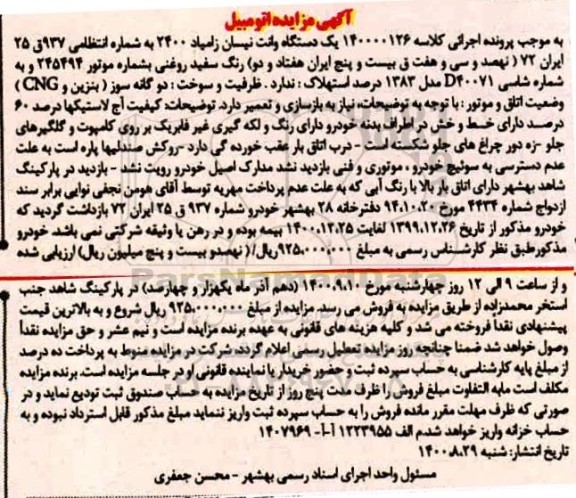 آگهی مزایده اتومبیل
به موجب پرونده اجرائی کلاسه ۱۴۰۰۰۰۱۲۶ یک دستگاه وانت نیسان زامیاد ۲۴۰۰ به شماره انتظامی ۹۳۷ق ۲۵
ایران ۷۲ ( نهصد و سی و هفت ق بیست و پنج ایران هفتاد و دو) رنگ سفید روغنی بشماره موتور ۲۴۵۴۹۴ و به
شماره شاسی D۴۰۰۷۱ مدل ۱۳۸۳ درصد استهلاک : ندارد . ظرفیت و سوخت : دو گانه سوز ( بنزین و CNG )
وضعیت اتاق و موتور : با توجه به توضیحات، نیاز به بازسازی و تعمیر دارد. توضیحات: کیفیت آج لاستیکها درصد ۶۰
درصد دارای خط و خش در اطراف بدنه خودرو دارای رنگ و لکه گیری غیر فابریک بر روی کاپوت و گلگیرهای
جلو -زه دور چراغ های جلو شکسته است - درب اتاق بار عقب خورده گی دارد -روکش صندلیها پاره است به علت
عدم دسترسی به سوئیچ خودرو ، موتوری و فنی بازدید نشد مدارک اصیل خودرو رویت نشد - بازدید در پارکینگ
شاهد بهشهر دارای اتاق بار بالا با رنگ آبی که به علت عدم پرداخت مهریه توسط آقای هومن نجفی نوایی برابر سند
ازدواج شماره ۴۴۳۴ مورخ ۹۴،۱۰،۲۰ دفترخانه ۲۸ بهشهر خودرو شماره ۹۳۷ ق ۲۵ ایران ۷۲ بازداشت گردید که
خودرو مذکور از تاریخ ۱۳۹۹،۱۲،۲۶ لغایت ۱۴۰۰،۱۲،۲۵ بیمه بوده و در رهن یا وثیقه شرکتی نمی باشد. خودرو
مذکورطبق نظر کارشناس رسمی به مبلغ ۹۲۵،۰۰۰،۰۰۰ریال/ ( نهصدو بیست و پنج میلیون ریال) ارزیابی شده
و از ساعت ۹ الی ۱۲ روز چهارشنبه مورخ ۱۴۰۰،۹،۱۰ (دهم آذر ماه یکهزار و چهارصد) در پارکینگ شاهد جنب
استخر محمدزاده از طریق مزایده به فروش می رسد. مزایده از مبلغ ۹۲۵،۰۰۰،۰۰۰ ریال شروع و به بالاترین قیمت
پیشنهادی نقداً فروخته می شد و کلیه هزینه های قانونی به عهده برنده مزایده است و نیم عشر و حق مزایده نقداً
وصول خواهد شد ضمنا چنانچه روز مزایده تعطیل رسمی اعلام گردد، شرکت در مزایده منوط به پرداخت ده درصد
از مبلغ پایه کارشناسی به حساب سپرده ثبت و حضور خریدار یا نماینده قانونی او در جلسه مزایده است. برنده مزایده
مکلف است مابه التفاوت مبلغ فروش را ظرف مدت پنج روز از تاریخ مزایده به حساب صندوق ثبت تودیع نماید و در
صورتی که ظرف مهلت مقرر مانده فروش را به حساب سپرده ثبت واریز ننماید مبلغ مذکور قابل استرداد نبوده و به
حساب خزانه واریز خواهد شد.م الف ۱۲۲۳۹۵۵ آ-ا- ۱۴۰۷۹۶۹
تاریخ انتشار: شنبه ۱۴۰۰،۸،۲۹
مسئول واحد اجرای اسناد رسمی بهشهر - محسن جعفری